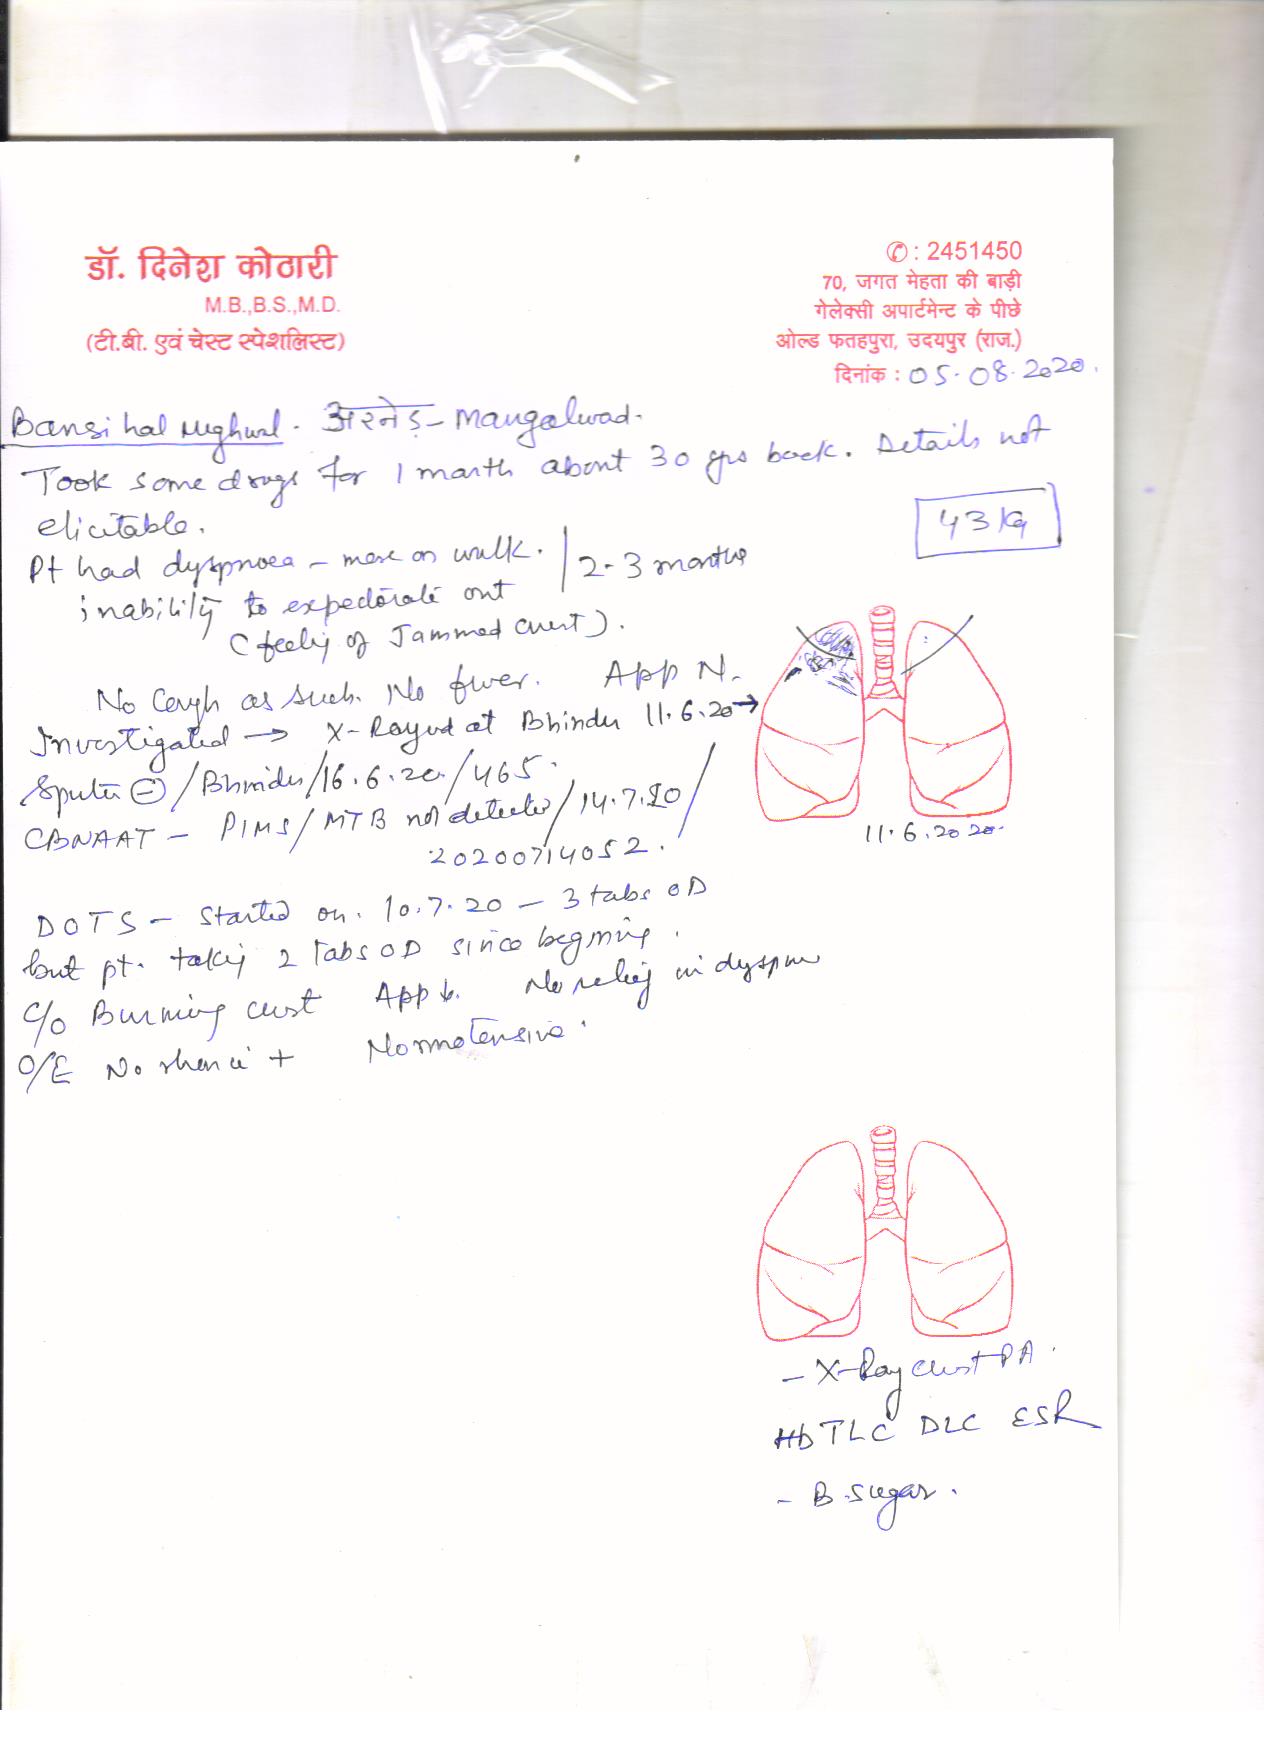 डॉ. दिनेश कोठारी
M.B.,B.S.,M.D.
(टी.बी. एवं चेस्ट स्पेशलिस्ट)
✆ : 2451450
70, जगत मेहता की बाड़ी
गेलेक्सी अपार्टमेन्ट के पीछे
ओल्ड फतहपुरा, उदयपुर (राज.)
दिनांक : 05.08.2020.
Bansi hal Meghwal. अरनेड़ - Mangalwad.
Took some drugs for 1 month about 30 yrs back. Details not
elicitable.
43 Kg
Pt had dyspnoea - more on walk.
inability to expectorate out
(feeling of Jammed chest).
2-3 months
No Cough as such. No fever. App N.
Investigated → X-Rayed at Bhinder 11.6.20 →
Sputum ⊖ / Bhinder / 16.6.20 / 465.
CBNAAT - PIMS / MTB not detected / 14.7.20 /
20200714052.
11.6.2020.
DOTS - Started on. 10.7.20 - 3 tabs OD
but pt. taking 2 Tabs OD since begining.
C/o Burning chest App ↓. No relief in dyspnoea
O/E No rhonchi + Normotensive.
- X-Ray Chest PA.
Hb TLC DLC ESR
- B. Sugar.